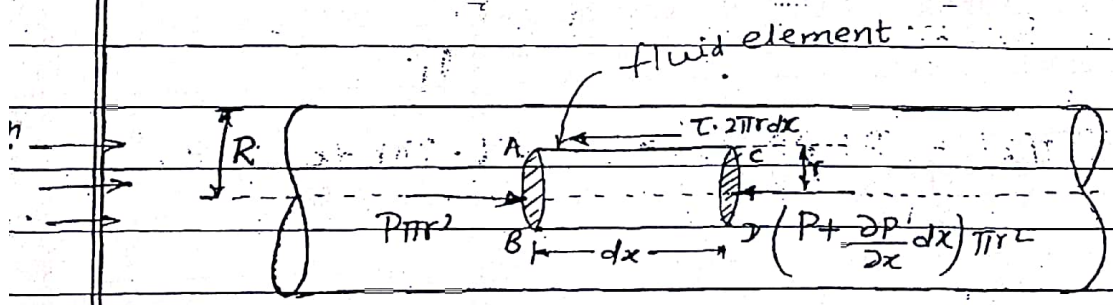 fluid element
τ. 2πrdx
R
A
C
r
Pπr²
B
dx
D
(P + ∂P/∂x dx) πr²